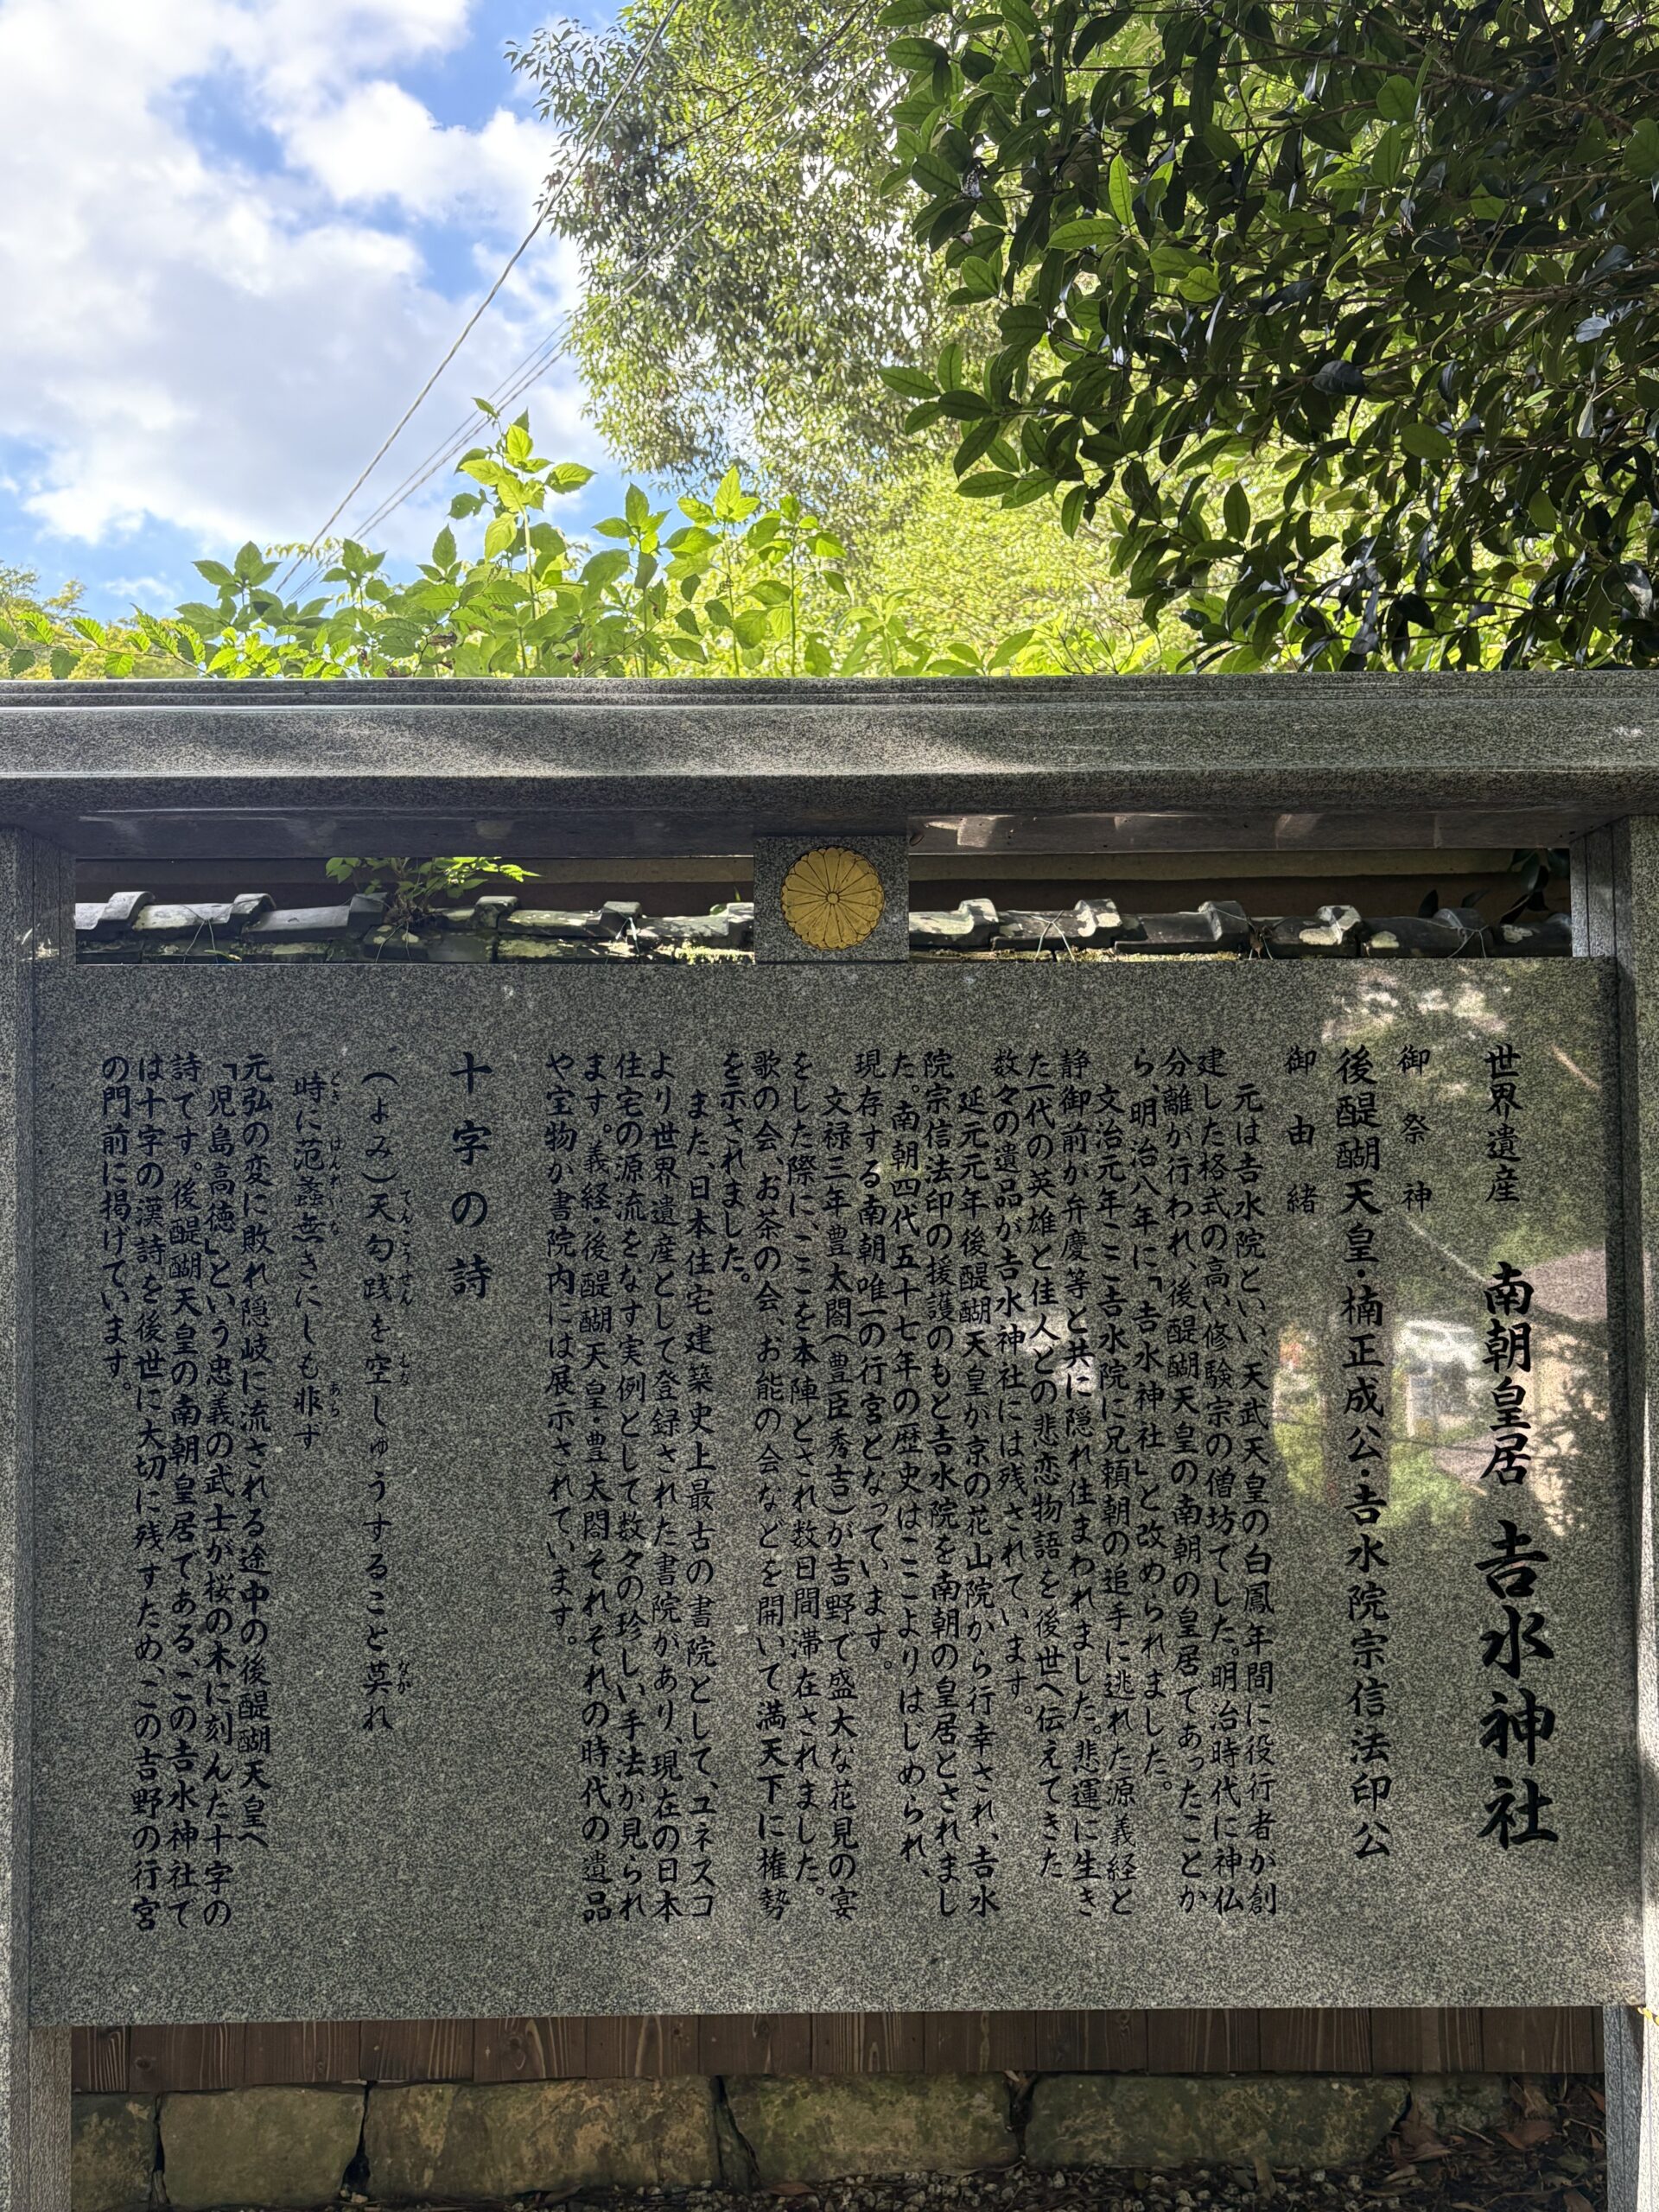 世界遺産 南朝皇居 𠮷水神社
御祭神
後醍醐天皇・楠正成公・𠮷水院宗信法印公
御由緒
元は𠮷水院といい、天武天皇の白鳳年間に役行者が創
建した格式の高い修験宗の僧坊でした。明治時代に神仏
分離が行われ、後醍醐天皇の南朝の皇居であったことか
ら、明治八年に「𠮷水神社」と改められました。
文治元年ここ𠮷水院に兄頼朝の追手に逃れた源義経と
静御前が弁慶等と共に隠れ住まわれました。悲運に生き
た一代の英雄と佳人との悲恋物語を後世へ伝えてきた
数々の遺品が𠮷水神社には残されています。
延元元年後醍醐天皇が京の花山院から行幸され、𠮷水
院宗信法印の援護のもと𠮷水院を南朝の皇居とされまし
た。南朝四代五十七年の歴史はここよりはじめられ、
現存する南朝唯一の行宮となっています。
文禄三年豊太閤(豊臣秀吉)が吉野で盛大な花見の宴
をした際に、ここを本陣とされ数日間滞在されました。
歌の会、お茶の会、お能の会などを開いて満天下に権勢
を示されました。
また、日本住宅建築史上最古の書院として、ユネスコ
より世界遺産として登録された書院があり、現在の日本
住宅の源流をなす実例として数々の珍しい手法が見られ
ます。義経・後醍醐天皇・豊太閤それぞれの時代の遺品
や宝物が書院内には展示されています。
十字の詩
(よみ)天勾践を空しゅうすること莫れ
時に范蠡無きにしも非ず
元弘の変に敗れ隠岐に流される途中の後醍醐天皇へ
「児島高徳」という忠義の武士が桜の木に刻んだ十字の
詩です。後醍醐天皇の南朝皇居である、この𠮷水神社で
は十字の漢詩を後世に大切に残すため、この吉野の行宮
の門前に掲げています。